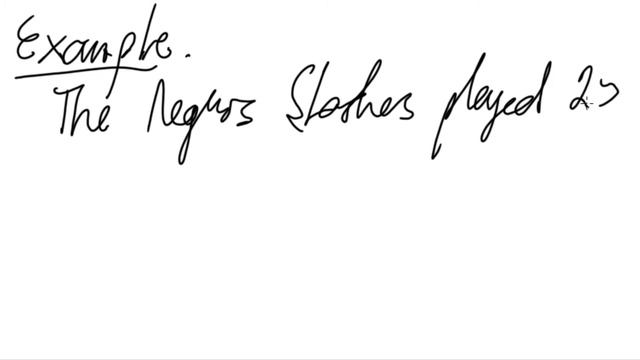 Example.
The Negros Slashers played